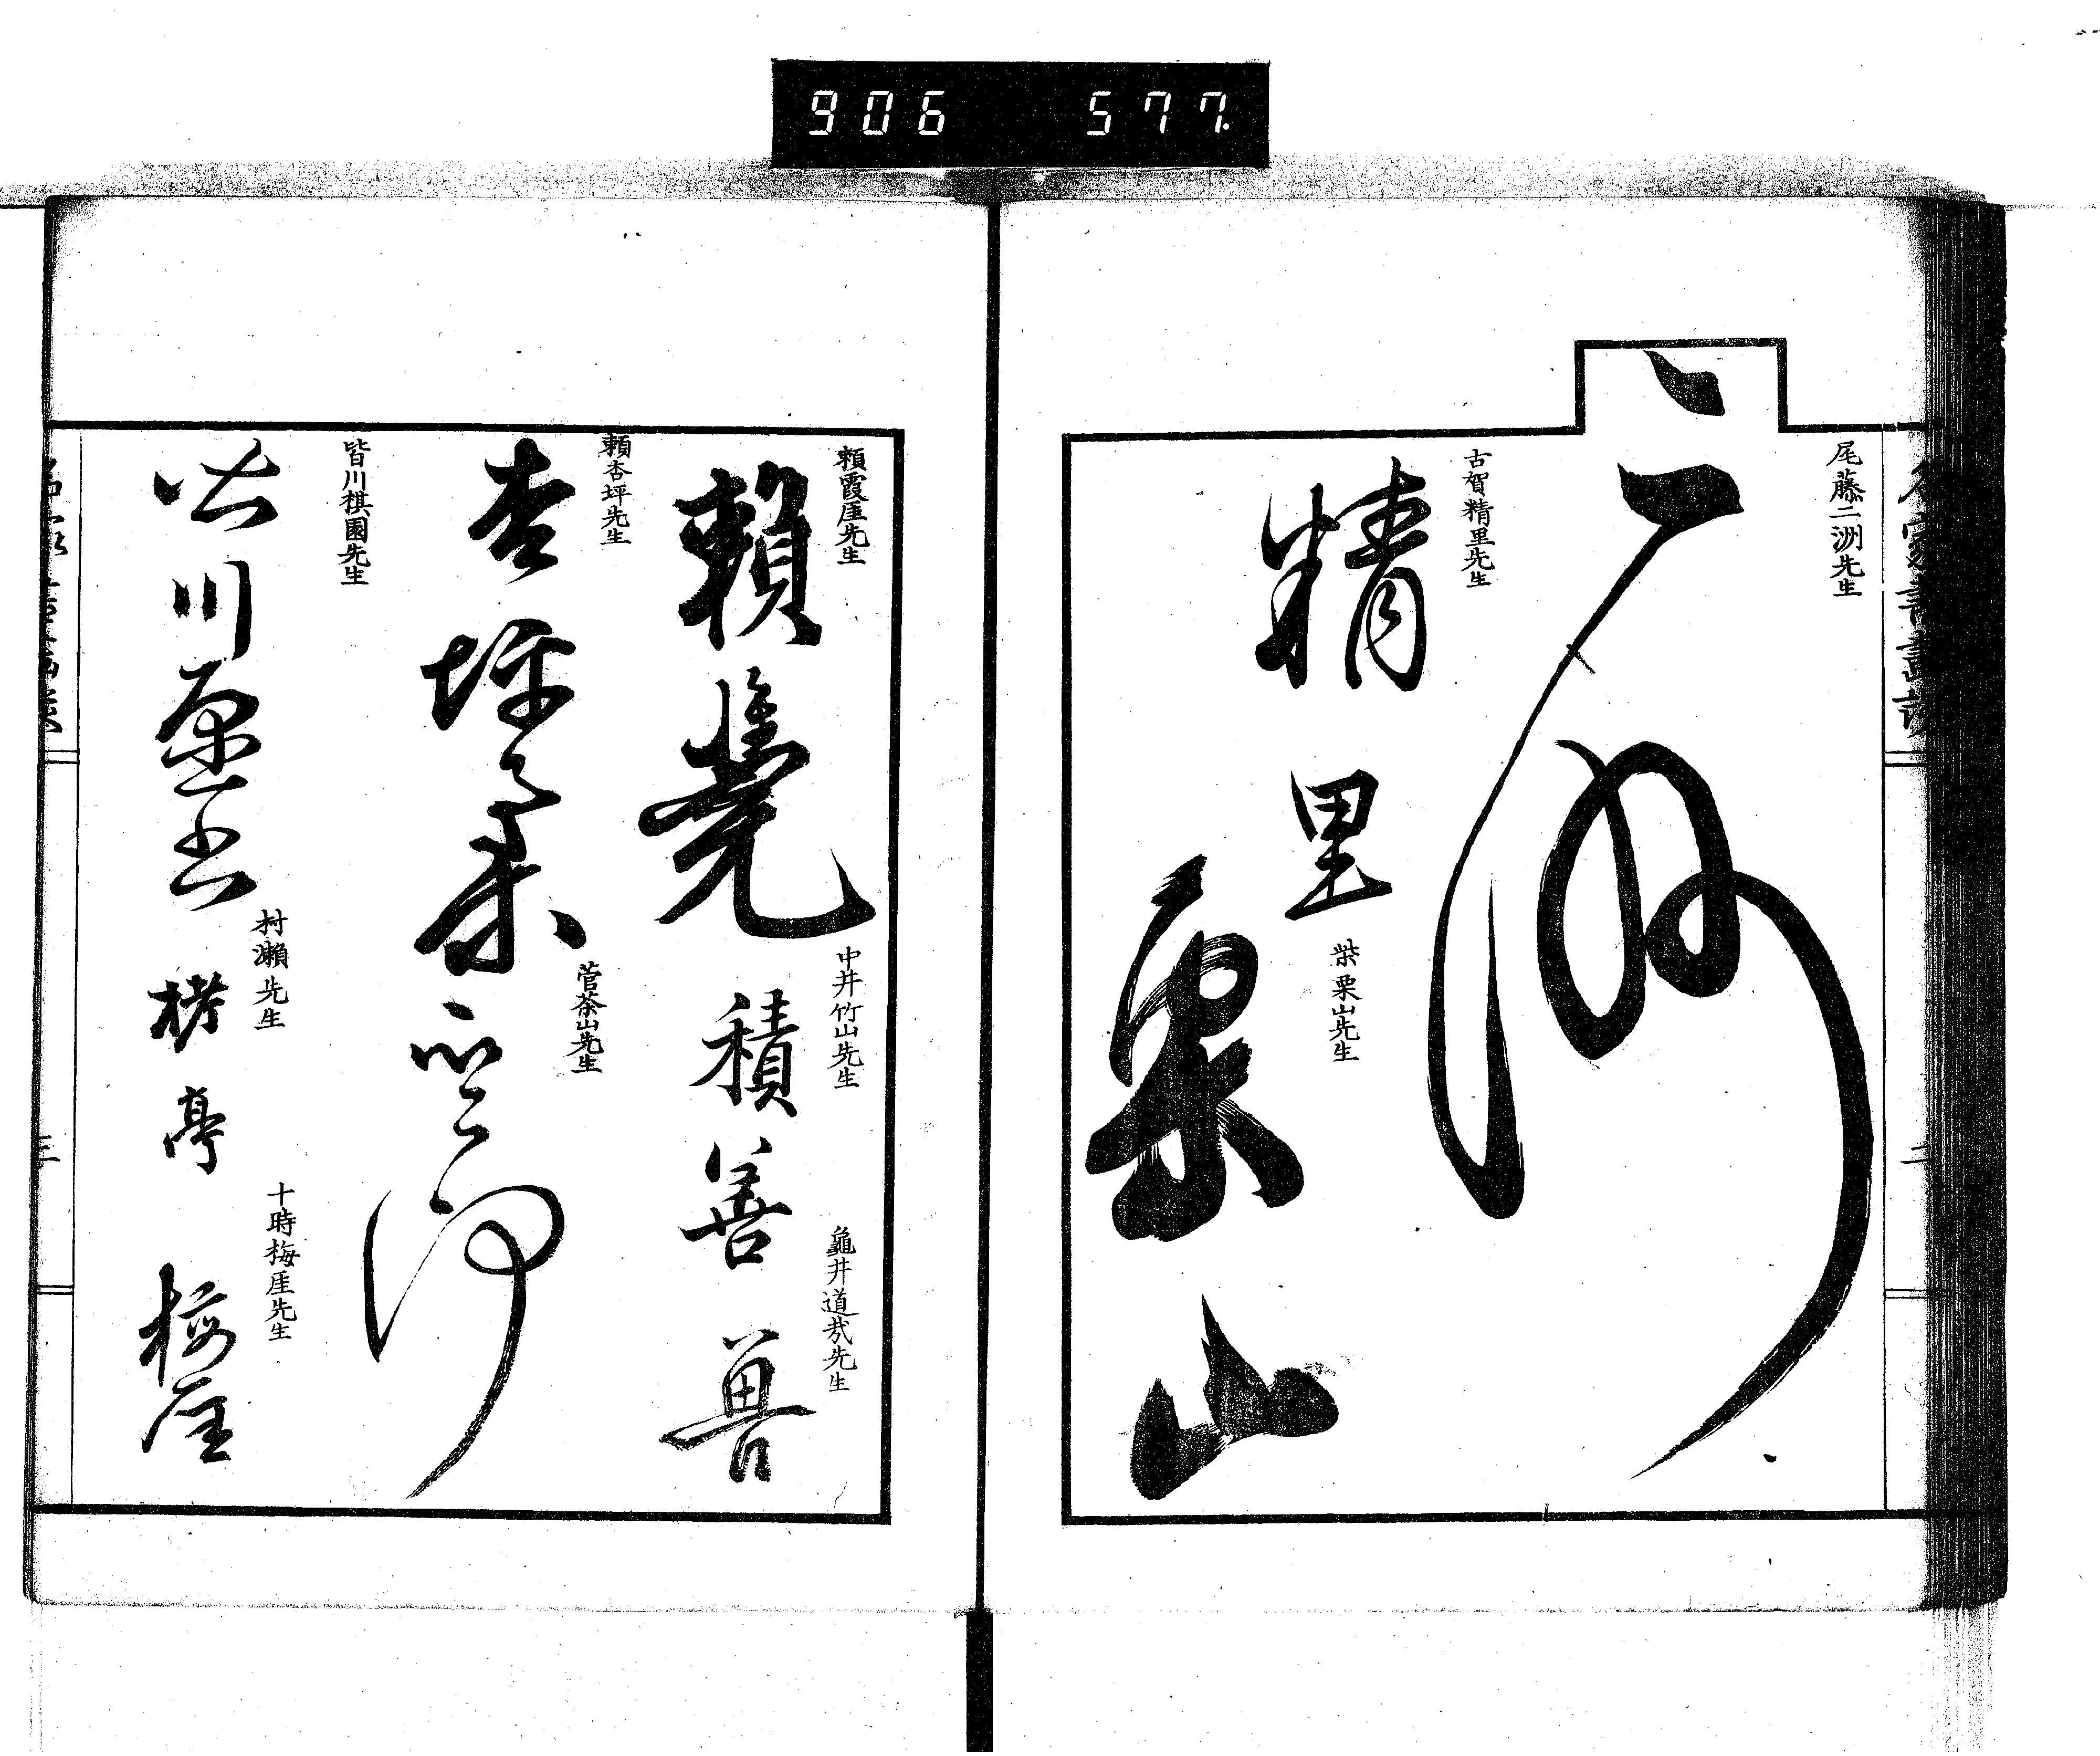 906 577
名家書畫談
二
尾藤二洲先生
二洲
古賀精里先生
精里
柴栗山先生
栗山
頼霞厓先生
頼
中井竹山先生
積善
龜井道哉先生
頼杏坪先生
杏坪柔
菅茶山先生
晋卿
皆川棋園先生
皆川愿書
村瀬先生
栲亭
十時梅厓先生
梅厓
三